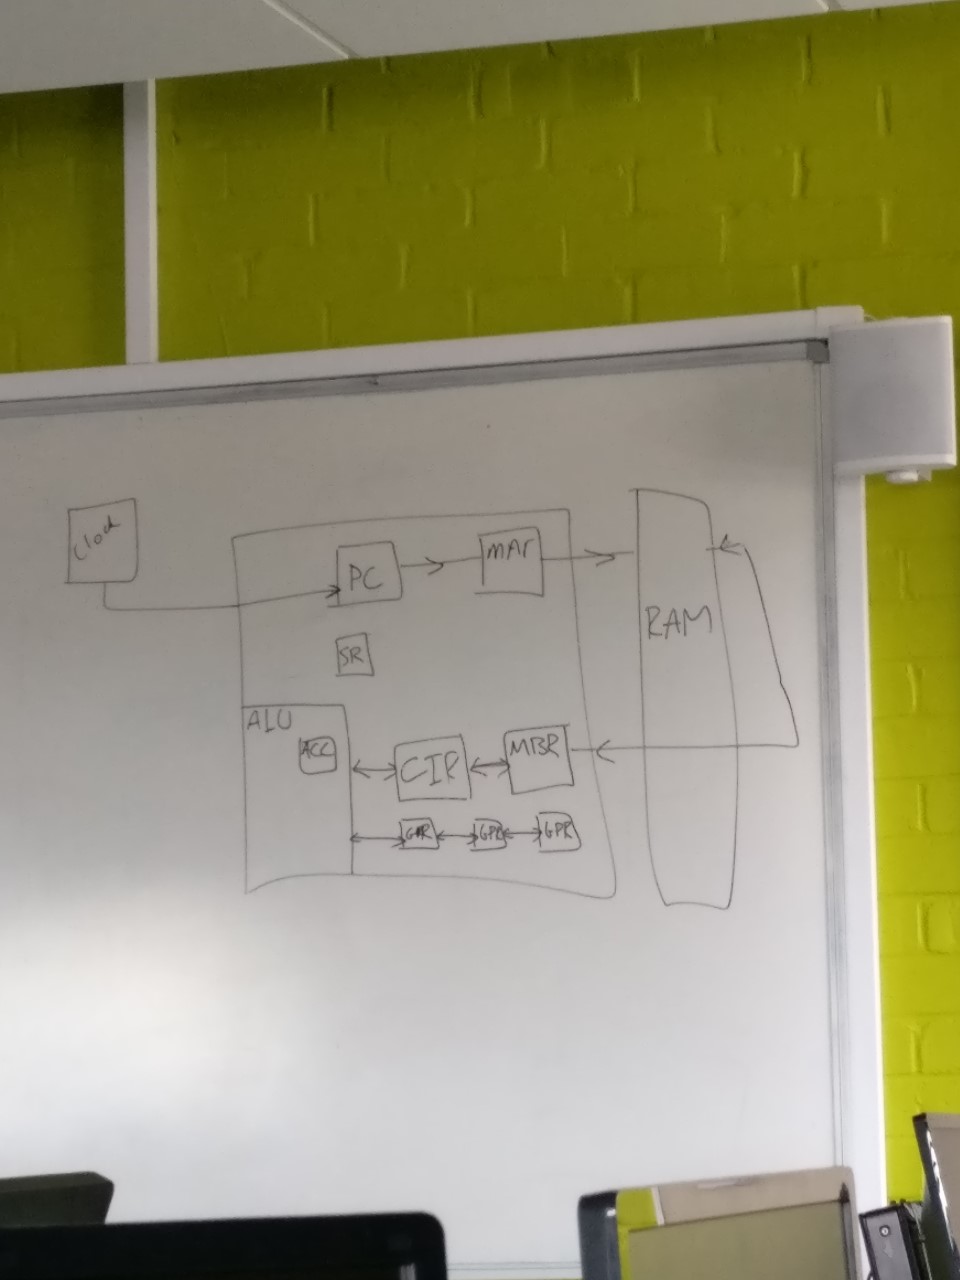 Clock
PC
MAR
RAM
SR
ALU
ACC
CIR
MBR
GPR
GPR
GPR